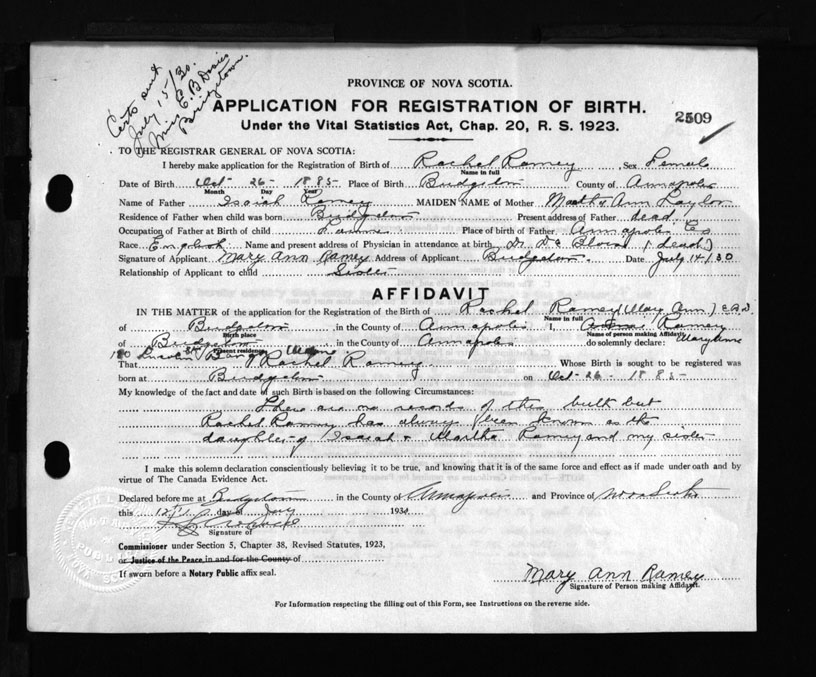 Certs sent
July 15/30.
Miss E. B. Davies
Bridgetown.
PROVINCE OF NOVA SCOTIA.
APPLICATION FOR REGISTRATION OF BIRTH.
2509
Under the Vital Statistics Act, Chap. 20, R. S. 1923.
TO THE REGISTRAR GENERAL OF NOVA SCOTIA:
I hereby make application for the Registration of Birth of Rachel Ramey Sex Female
Name in full
Date of Birth Oct- 26- 1885- Place of Birth Bridgetown County of Annapolis
Month Day Year
Name of Father Isaiah Ramey MAIDEN NAME of Mother Ann Taylor
Residence of Father when child was born Bridgetown Present address of Father dead
Occupation of Father at Birth of child Place of birth of Father Annapolis Co
Race English Name and present address of Physician in attendance at birth Dr. (dead)
Signature of Applicant Mary Ann Ramey Address of Applicant Bridgetown. Date July 14/30
Relationship of Applicant to child Sister
AFFIDAVIT
IN THE MATTER of the application for the Registration of the Birth of Rachel Ramey (Mary Ann) E.B.D.
Name in full
of Bridgetown in the County of Annapolis I, Ramey
Birth place Name of person making Affidavit
of Bridgetown in the County of Annapolis do solemnly declare: Mary Ann
Present residence
That Rachel Ramey Whose Birth is sought to be registered was
born at Bridgetown on Oct- 26- 1885-
My knowledge of the fact and date of such Birth is based on the following Circumstances:
There are no records of this birth but
Rachel Ramey has always been known as the
daughter of Isaiah & Martha Ramey and my sister
I make this solemn declaration conscientiously believing it to be true, and knowing that it is of the same force and effect as if made under oath and by
virtue of The Canada Evidence Act.
Declared before me at Bridgetown in the County of Annapolis and Province of Nova Scotia
this day of July 1930
Signature of
Commissioner under Section 5, Chapter 38, Revised Statutes, 1923,
or Justice of the Peace, in and for the County of
If sworn before a Notary Public affix seal.
Mary Ann Ramey
Signature of Person making Affidavit.
For Information respecting the filling out of this Form, see Instructions on the reverse side.